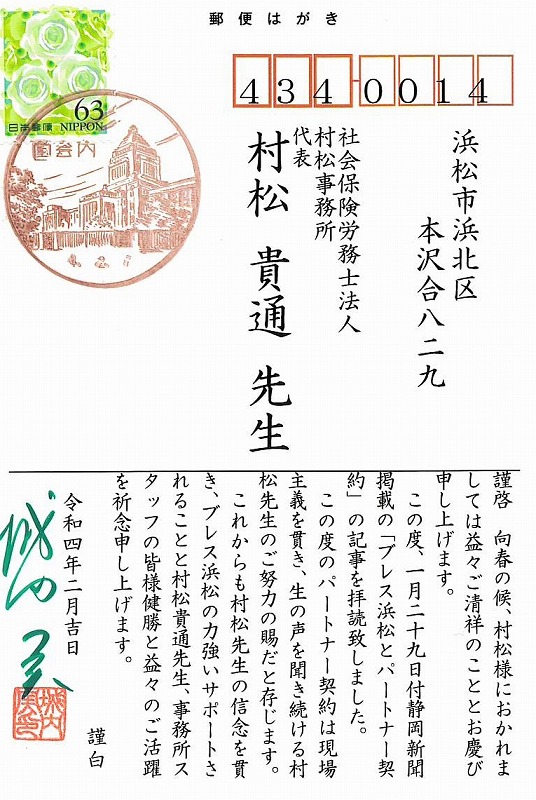 郵便はがき
63
日本郵便 NIPPON
国会内
434-0014
浜松市浜北区
本沢合八二九
社会保険労務士法人
村松事務所
代表
村松 貴通 先生
謹啓 向春の候、村松様におかれま
しては益々ご清祥のこととお慶び
申し上げます。
この度、一月二十九日付静岡新聞
掲載の「ブレス浜松とパートナー契
約」の記事を拝読致しました。
この度のパートナー契約は現場
主義を貫き、生の声を聞き続ける村
松先生のご努力の賜だと存じます。
これからも村松先生の信念を貫
き、ブレス浜松の力強いサポートさ
れることと村松貴通先生、事務所ス
タッフの皆様健勝と益々のご活躍
を祈念申し上げます。
謹白
令和四年二月吉日
城内 実